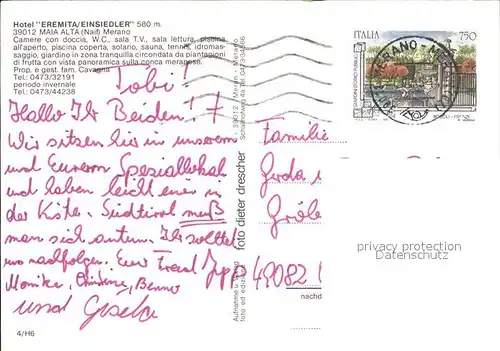 Hotel "EREMITA/EINSIEDLER" 580 m.
39012 MAIA ALTA (Naif) Merano
Camere con doccia, W.C., sala T.V., sala lettura, piscina
all'aperto, piscina coperta, solario, sauna, tennis, idromas-
saggio, giardino in zona tranquilla circondata da piantagioni
di frutta con vista panoramica sulla conca meranese.
Prop. e gest. fam. Cavagna
Tel.: 0473/32191
periodo invernale
Tel.: 0473/44238
Tobi!
Hallo Ihr Beiden!
Wir sitzen hier in unserem
und Eurem Speziallokal
und haben leicht einen in
der Kiste. Südtirol muß
man sich antun. Ihr solltet
uns nachfolgen. Eure
Monika, Christine, Benno
und Gisela
4/H6
39012 Merano - Meran
foto dieter drescher
ITALIA 750
GIARDINI STORICI PUBBLICI
BOBOLI - FIRENZE
MERANO
Familie
Gerda
Gröb
D 49082
privacy protection
Datenschutz